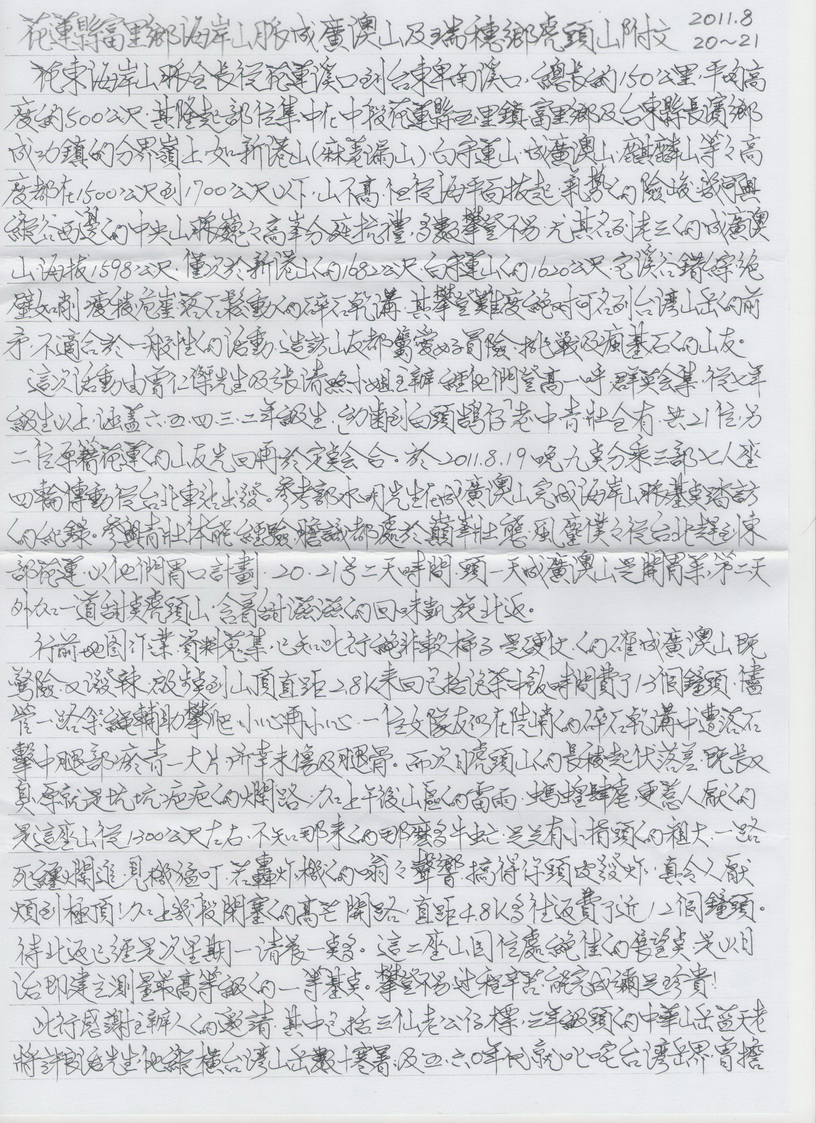 花蓮縣富里鄉海岸山脈成廣澳山及瑞穗鄉虎頭山附文
2011.8
20~21
花東海岸山脈全長從花蓮溪口到台東卑南溪口,總長約150公里,平均高
度約500公尺,其隆起部位集中在中段花蓮縣玉里鎮.富里鄉及台東縣長濱鄉
成功鎮的分界嶺上.如新港山(麻荖漏山).白守蓮山.成廣澳山.麒麟山等之高
度都在1500公尺到1700公尺以下,山不高,但從海平面拔起,氣勢的險峻,幾可與
縱谷西邊的中央山脈巍巍高峯分庭抗禮,多數攀登不易,尤其名列老三的成廣澳
山,海拔1598公尺,僅次於新港山的1682公尺,白守蓮山的1620公尺,它溪谷錯綜絕
壁如削,瘦稜,危崖落石鬆動的碎石乾溝,其攀登難度絕對可名列台灣山岳的前
矛,不適合於一般性的活動,造訪山友都屬愛好冒險、挑戰及瘋基石的山友。
這次活動由曾仁傑先生及張清照小姐主辦,經他們登高一呼,群英會集,從七年
級生以上,涵蓋六.五.四.三.二年級生,幼齒到白頭鵠仔,老中青壯全有,共21位,另
二位原籍花蓮的山友先回再於定點會合。於2011.8.19晚九點分乘三部七人座
四輪傳動從台北車站出發。參考部永明先生在成廣澳山完成海岸山脈基點踏訪
的紀錄。參與青壯体能經驗膽識都處於巔峯壯態,風塵僕々從台北轉到東
部花蓮,以他們胃口計劃,20.21号二天時間,頭一天成廣澳山是開胃菜,第二天
外加一道甜點虎頭山,含着甜滋滋的回味凱旋北返。
行前地图作業,資料蒐集,已知此行絕非軟柿子,是硬仗,的確成廣澳山既
驚險,又潑辣,啟登到山頂直距2.8K來回包括吃茶休息時間費了13個鐘頭,儘
管一路架繩輔助攀爬,小心再小心,一位女隊友仍在陡峭的碎石乾溝中遭落石
擊中腿部,瘀青一大片,所幸未傷及腿骨。而次日虎頭山的長稜起伏落差,既長又
臭,原就是坑坑疤疤的爛路,加上午後山區的雷雨,螞蝗肆虐,更惹人厭的
是這座山從1300公尺左右,不知哪來的那麼多牛虻,足足有小指頭的粗大,一路
死纏爛追,見機猛叮,若轟炸機的嗡々聲響,搞得你頭皮發炸,真令人厭
煩到極頂!加上幾段閉塞的高芒開路,直距4.8K多往返費了近12個鐘頭。
待北返已經是次星期一清晨一點多。這二座山因位處絕佳的展望點,是以日
治即建立測量最高等級的一等基點。攀登不易,過程辛苦,能完成彌足珍貴!
此行感謝主辦人的邀請,其中包括三仙老公仔標,三年級頭的中華山岳藍天老
將許銀活先生,他縱橫台灣山岳數十寒暑,及五.六0年代就叱咤台灣岳界,曾擔